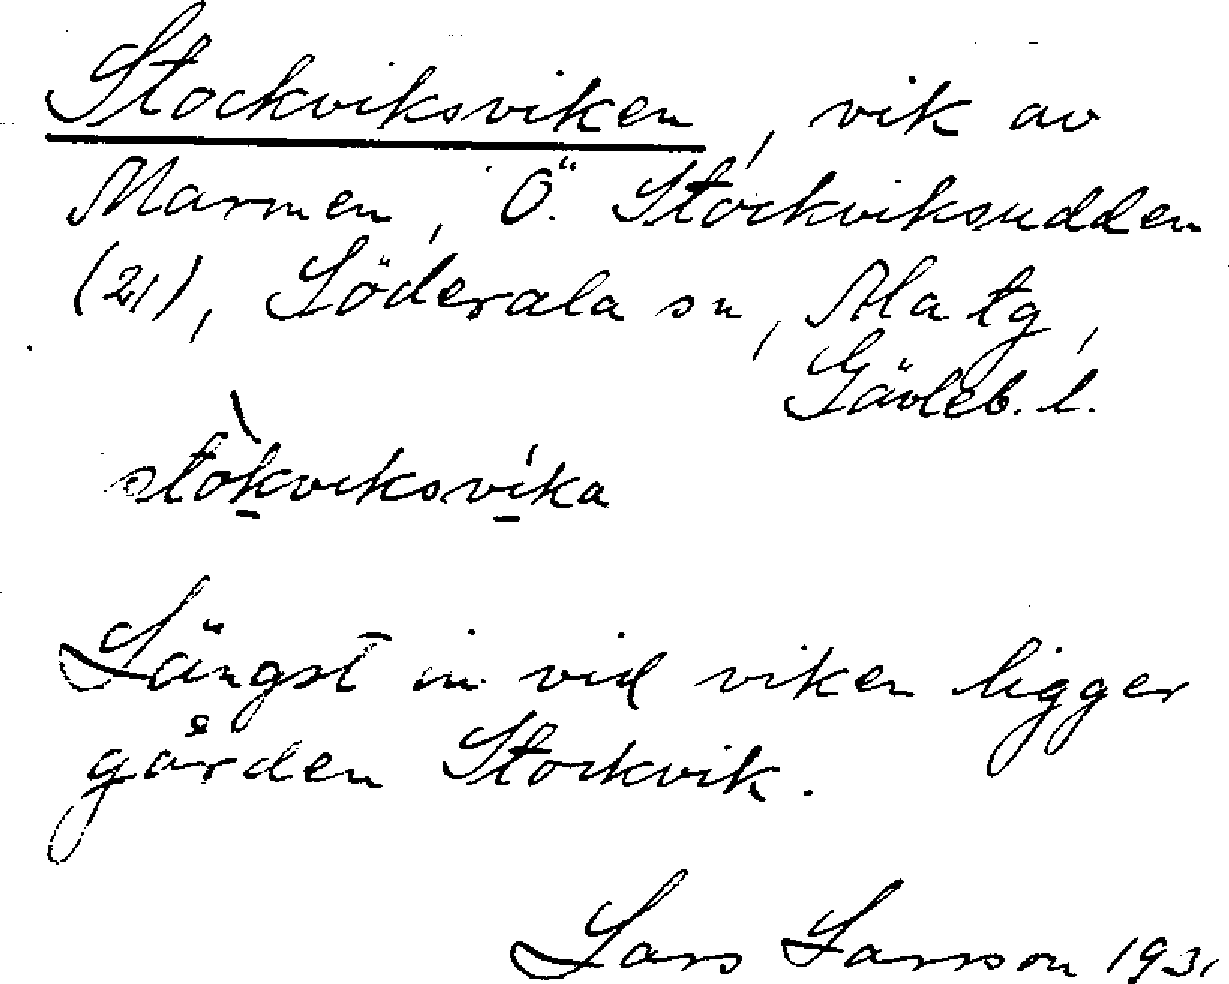 Stockviksviken, vik av
Marmen, Ö. Stockviksudden
(21), Söderala sn, Ala tg,
Gävleb. l.
stòkviksvíka
Längst in vid viken ligger
gården Stockvik.
Lars Larsson 1931